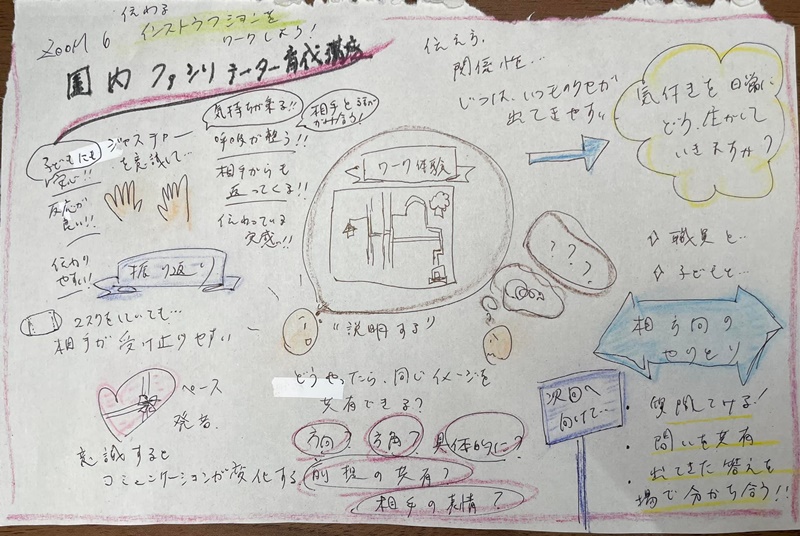 ZOOM 6
伝わる
インストラクションを
ワークしよう!
園内ファシリテーター育成講座
子どもにも
安心!!
反応が
良い!!
伝わり
やすい!
ジェスチャー
を意識して…
気持ちが乗る!!
呼吸が整う!!
相手からも
返ってくる!!
伝わっている
実感っ!!
相手と
振り返り
マスクをしていても…
相手が受け止りやすい
ペース
発音.
意識すると
コミュニケーションが変化する
ワーク体験
"説明する"
???
どうやったら、同じイメージを
共有できる?
方向?
方角?
具体的に?
前提の共有?
相手の表情?
伝えう、
関係性…
じつは、いつものクセが
出てきやすい
気付きを日常に
どう、生かして
いきますか?
職員と…
子どもと…
相方向の
やりとり
次回へ
向けて…
・質問してみる!
・問いを共有
・出てきた答えを
場で分かち合う!!